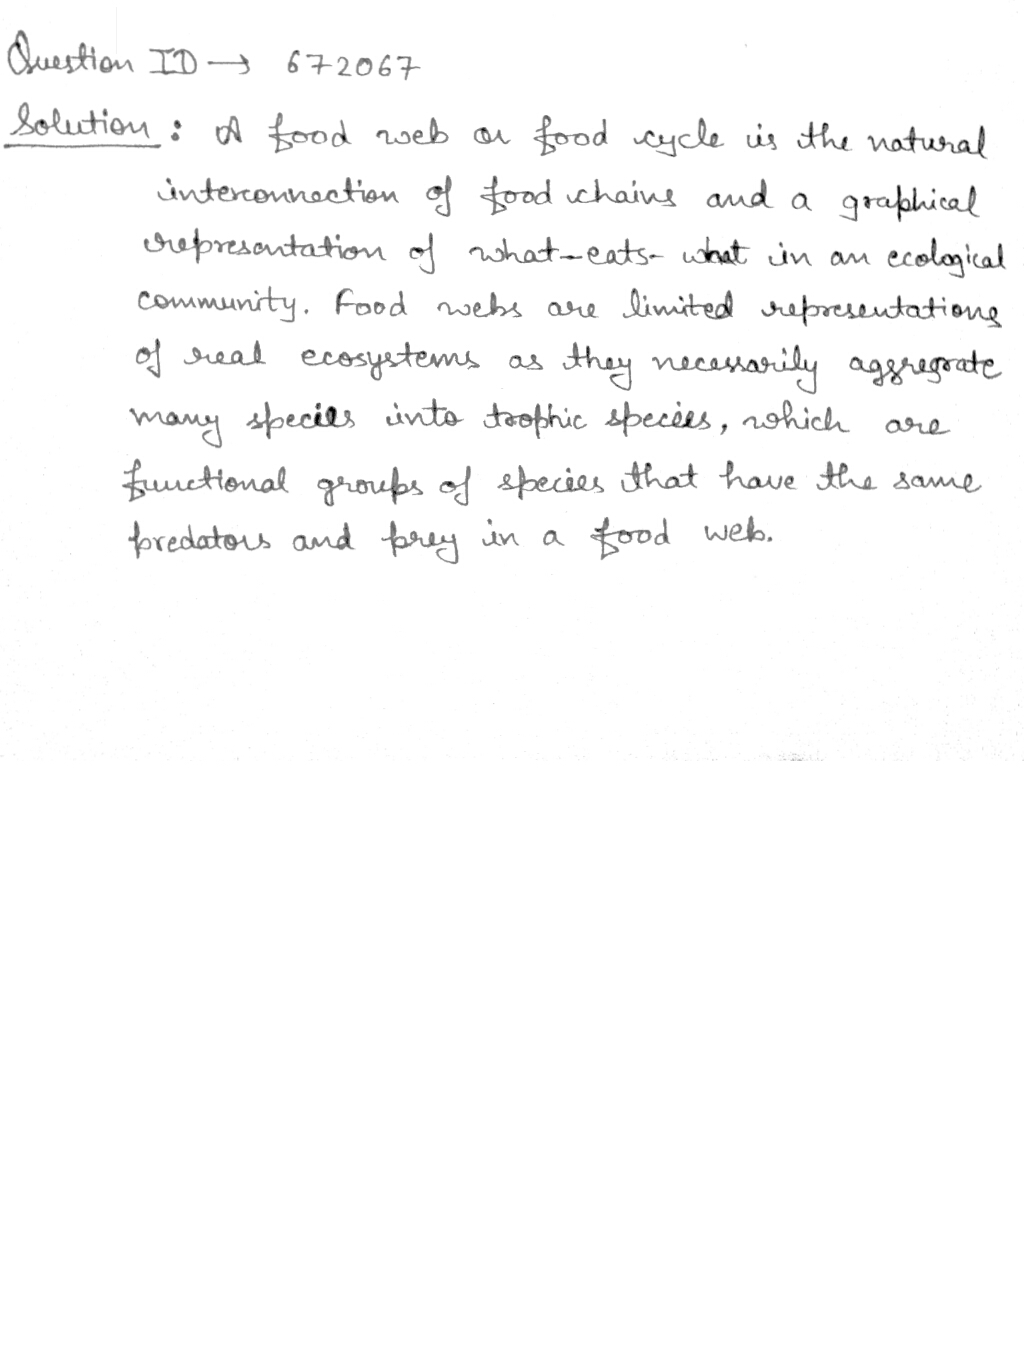 Question ID → 672067
Solution : A food web or food cycle is the natural
interconnection of food chains and a graphical
representation of what-eats-what in an ecological
community. Food webs are limited representations
of real ecosystems as they necessarily aggregate
many species into trophic species, which are
functional groups of species that have the same
predators and prey in a food web.